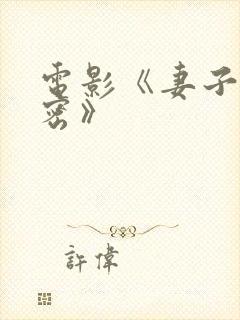 電影《妻子
密》
許偉